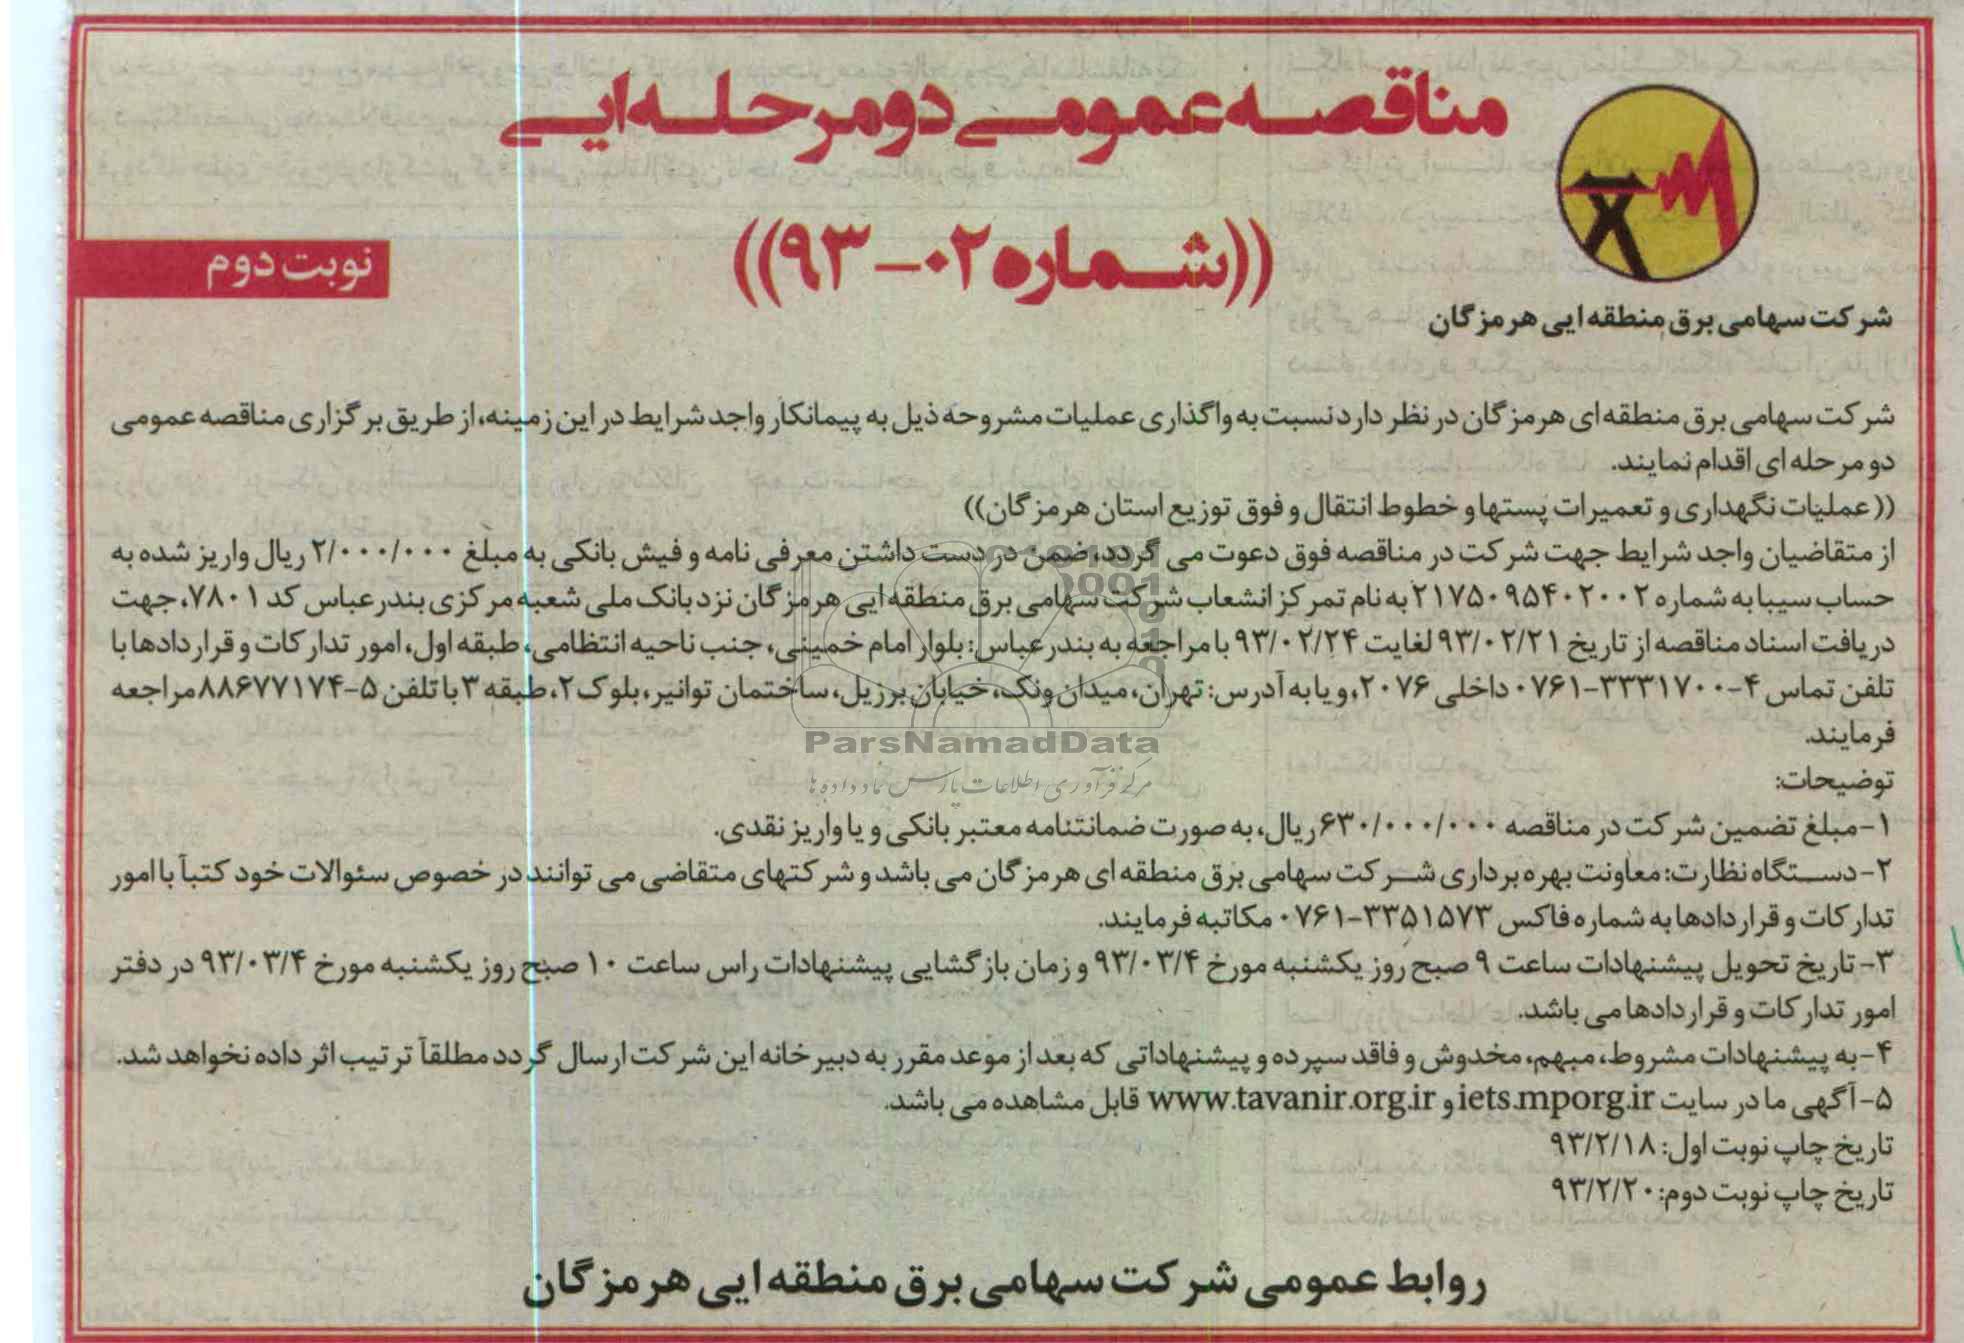 مناقصه عمومی دو مرحله ایی
((شماره ۰۲-۹۳))
نوبت دوم
شرکت سهامی برق منطقه ایی هرمزگان
شرکت سهامی برق منطقه ای هرمزگان در نظر دارد نسبت به واگذاری عملیات مشروحه ذیل به پیمانکار واجد شرایط در این زمینه، از طریق برگزاری مناقصه عمومی
دو مرحله ای اقدام نمایند.
((عملیات نگهداری و تعمیرات پستها و خطوط انتقال و فوق توزیع استان هرمزگان))
از متقاضیان واجد شرایط جهت شرکت در مناقصه فوق دعوت می گردد، ضمن در دست داشتن معرفی نامه و فیش بانکی به مبلغ ۲/۰۰۰/۰۰۰ ریال واریز شده به
حساب سیبا به شماره ۲۱۷۵۰۹۵۴۰۲۰۰۲ به نام تمرکز انشعاب شرکت سهامی برق منطقه ایی هرمزگان نزد بانک ملی شعبه مرکزی بندرعباس کد ۷۸۰۱، جهت
دریافت اسناد مناقصه از تاریخ ۹۳/۰۲/۲۱ لغایت ۹۳/۰۲/۲۴ با مراجعه به بندرعباس: بلوار امام خمینی، جنب ناحیه انتظامی، طبقه اول، امور تدارکات و قراردادها با
تلفن تماس ۴-۳۳۳۱۷۰۰-۰۷۶۱ داخلی ۲۰۷۶، و یا به آدرس: تهران، میدان ونک، خیابان برزیل، ساختمان توانیر، بلوک ۲، طبقه ۳ با تلفن ۵-۸۸۶۷۷۱۷۴ مراجعه
فرمایند.
توضیحات:
۱- مبلغ تضمین شرکت در مناقصه ۶۳۰/۰۰۰/۰۰۰ ریال، به صورت ضمانتنامه معتبر بانکی و یا واریز نقدی.
۲- دستگاه نظارت: معاونت بهره برداری شرکت سهامی برق منطقه ای هرمزگان می باشد و شرکتهای متقاضی می توانند در خصوص سئوالات خود کتباً با امور
تدارکات و قراردادها به شماره فاکس ۳۳۵۱۵۷۳-۰۷۶۱ مکاتبه فرمایند.
۳- تاریخ تحویل پیشنهادات ساعت ۹ صبح روز یکشنبه مورخ ۹۳/۰۳/۴ و زمان بازگشایی پیشنهادات راس ساعت ۱۰ صبح روز یکشنبه مورخ ۹۳/۰۳/۴ در دفتر
امور تدارکات و قراردادها می باشد.
۴- به پیشنهادات مشروط، مبهم، مخدوش و فاقد سپرده و پیشنهاداتی که بعد از موعد مقرر به دبیرخانه این شرکت ارسال گردد مطلقاً ترتیب اثر داده نخواهد شد.
۵- آگهی ما در سایت iets.mporg.ir و www.tavanir.org.ir قابل مشاهده می باشد.
تاریخ چاپ نوبت اول: ۹۳/۲/۱۸
تاریخ چاپ نوبت دوم: ۹۳/۲/۲۰
روابط عمومی شرکت سهامی برق منطقه ایی هرمزگان
ParsNamadData
مرکز فرآوری اطلاعات پارس نماد داده ها